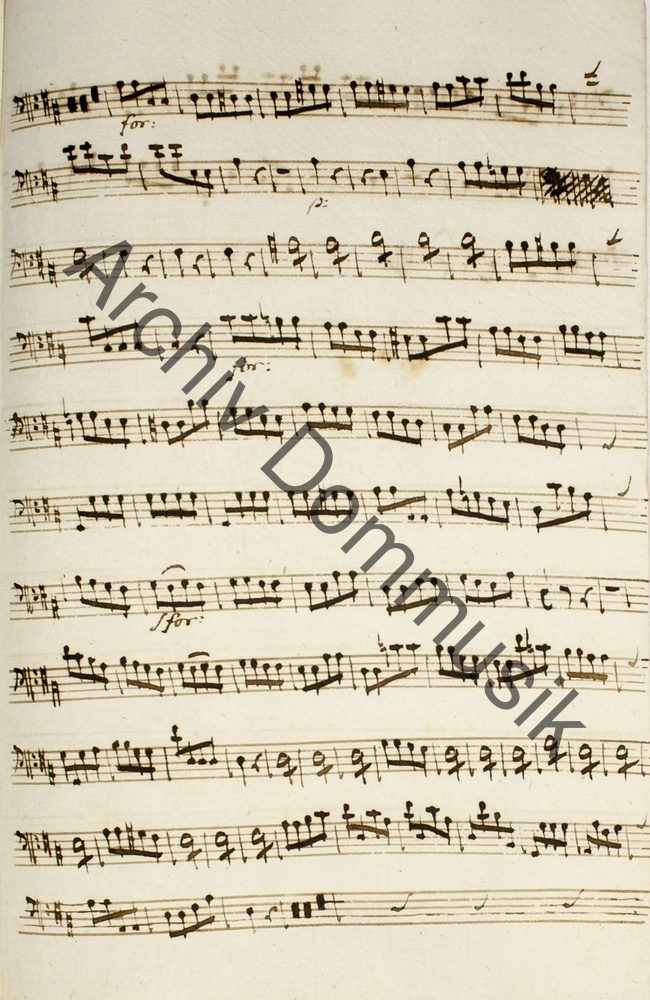 for:
p:
for:
sfor:
Archiv Dommusik